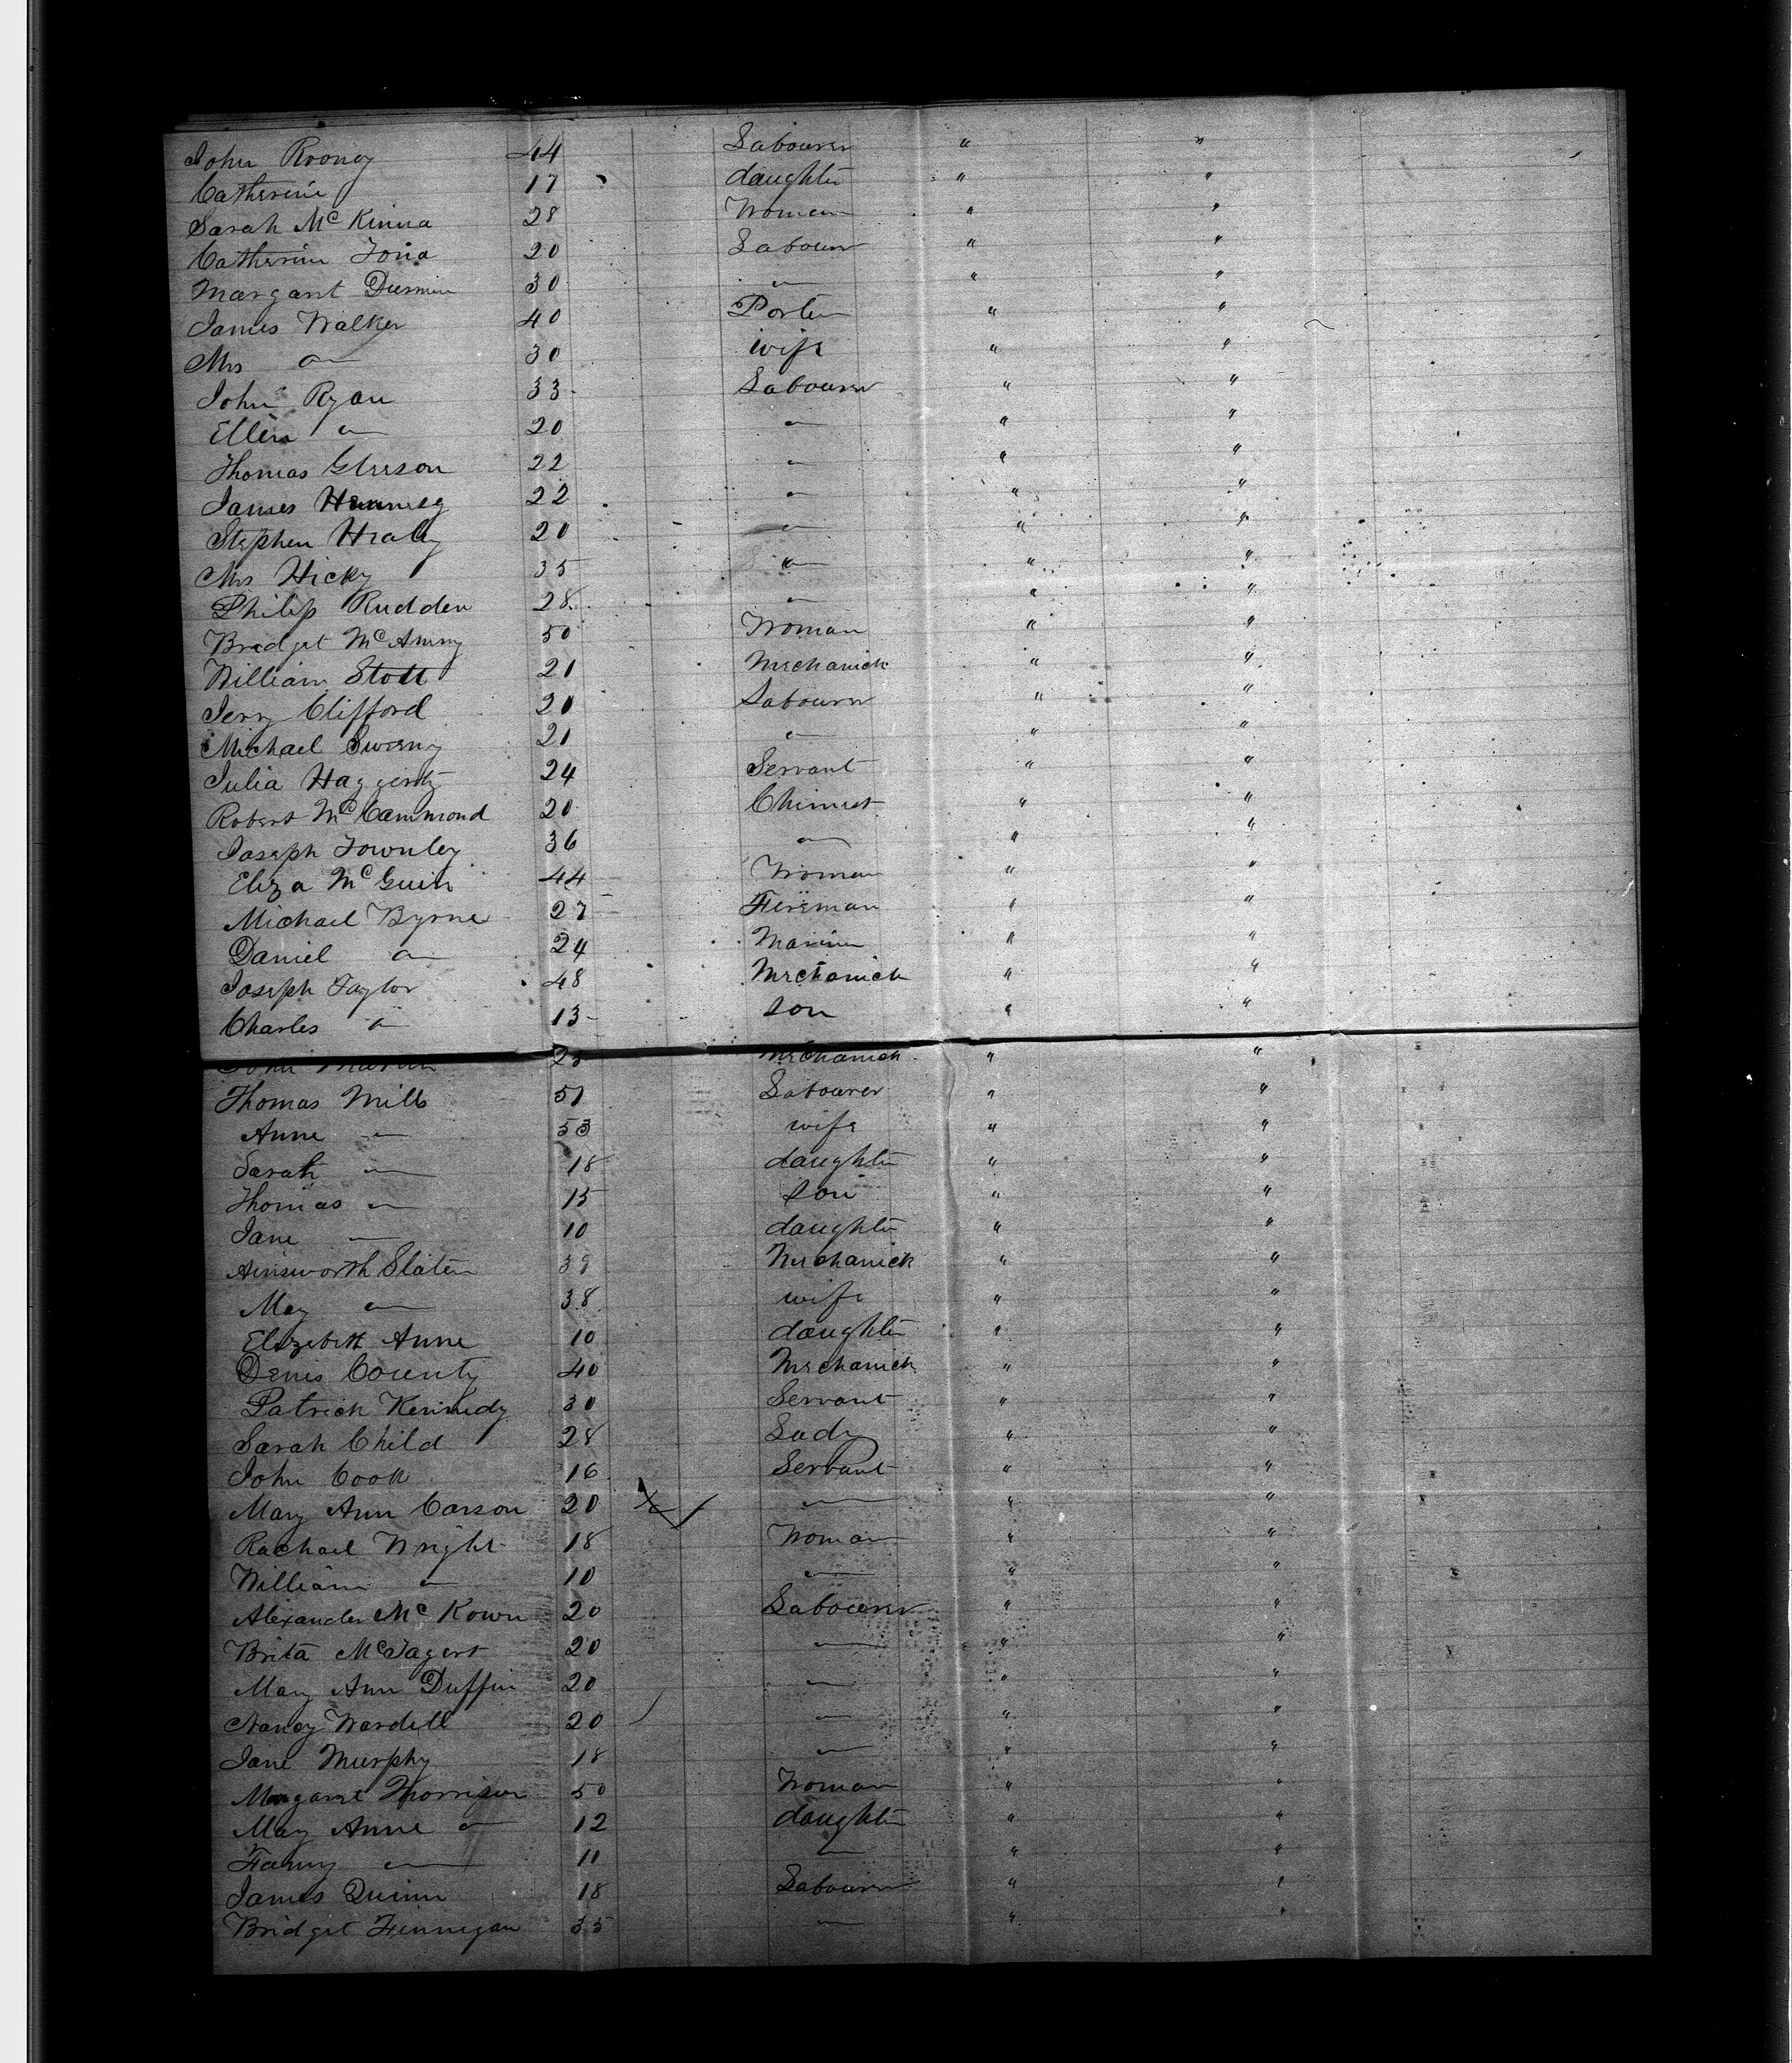 John Roony 44 Labourer " "
Catherine 17 daughter " "
Sarah Mc Kinna 28 Woman " "
Catherine 20 Labourer " "
Margaret 30 — " "
James Walker 40 Porter " "
Mrs — 30 wife " "
John Ryan 33 Labourer " "
Ellen — 20 — " "
Thomas Gleeson 22 — " "
James Hennesy 22 — " "
Stephen Healy 20 — " "
Mrs Hicky 35 — " "
Philip Rudden 28 — " "
Bridget 50 Woman " "
William Stott 21 Mechanick " "
Jerry Clifford 20 Labourer " "
Michael Sweeny 21 — " "
Julia Haggerty 24 Servant " "
Robert Mc Cammond 20 Chimest " "
Joseph Townley 36 — " "
Eliza Mc Guin 44 Woman " "
Michael Byrne 27 Fireman " "
Daniel — 24 Mariner " "
Joseph Taylor 48 Mechanick " "
Charles — 13 son " "
John 23 Mechanick " "
Thomas Mills 51 Labourer " "
Anne — 53 wife " "
Sarah — 18 daughter " "
Thomas — 15 son " "
Jane — 10 daughter " "
Ainsworth Slater 39 Mechanick " "
May — 38 wife " "
Elizebeth Anne 10 daughter " "
Denis County 40 Mechanick " "
Patrick Kennedy 30 Servant " "
Sarah Child 28 Lady " "
John Cook 16 Servant " "
Mary Ann Carson 20 — " "
Rachael Wright 18 Woman " "
William — 10 — " "
Alexander Mc Kown 20 Labourer " "
Brita McTagert 20 — " "
Mary Ann Duffin 20 — " "
Nancy Wardell 20 — " "
Jane Murphy 18 — " "
Margaret Morrison 50 Woman " "
May Anne — 12 daughter " "
Fanny — 11 — " "
James Quinn 18 Labourer " "
Bridget Finnegan 35 — " "